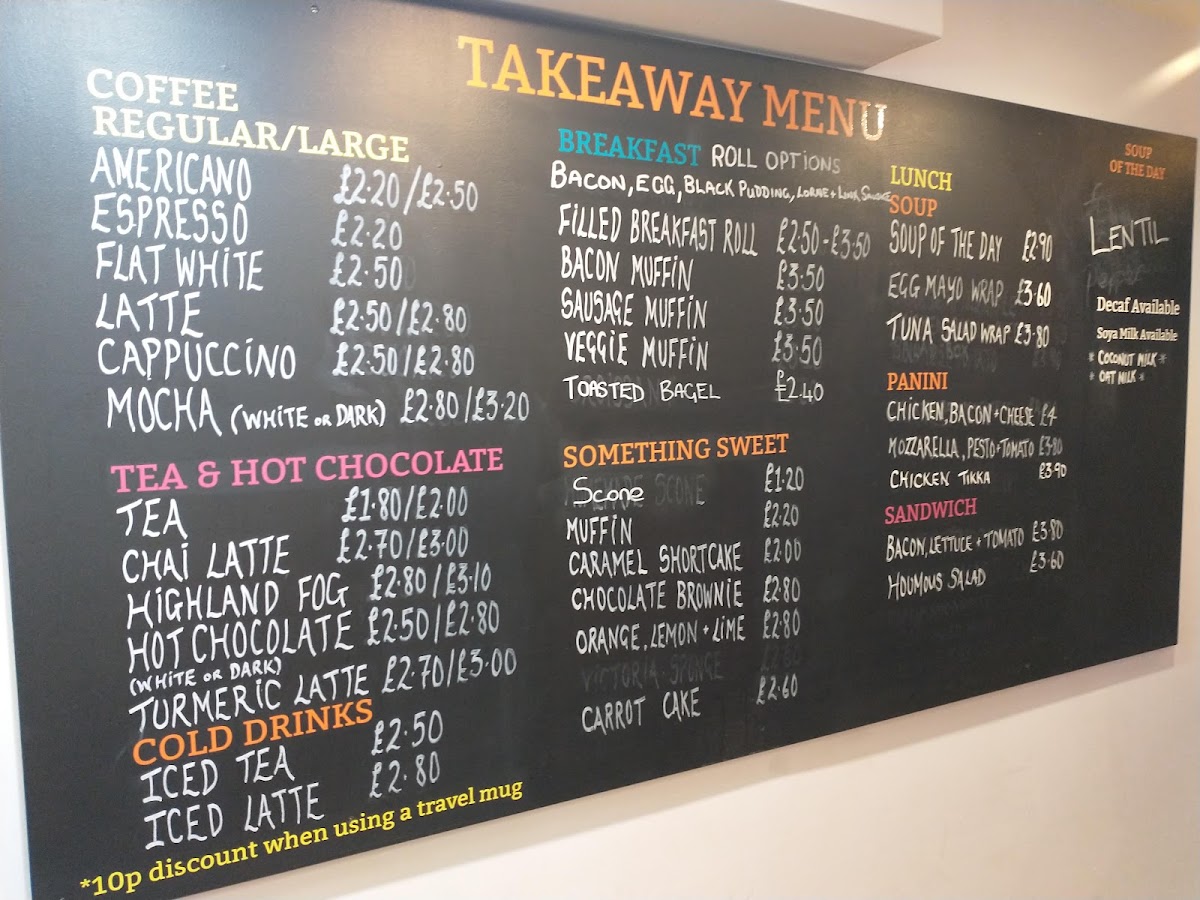 TAKEAWAY MENU
COFFEE
REGULAR/LARGE
AMERICANO £2.20/£2.50
ESPRESSO £2.20
FLAT WHITE £2.50
LATTE £2.50/£2.80
CAPPUCCINO £2.50/£2.80
MOCHA (WHITE OR DARK) £2.80/£3.20
TEA & HOT CHOCOLATE
TEA £1.80/£2.00
CHAI LATTE £2.70/£3.00
HIGHLAND FOG £2.80/£3.10
HOT CHOCOLATE £2.50/£2.80
(WHITE OR DARK)
TURMERIC LATTE £2.70/£3.00
COLD DRINKS
ICED TEA £2.50
ICED LATTE £2.80
*10p discount when using a travel mug
BREAKFAST ROLL OPTIONS
BACON, EGG, BLACK PUDDING, LORNE + LINK SAUSAGE
FILLED BREAKFAST ROLL £2.50-£3.50
BACON MUFFIN £3.50
SAUSAGE MUFFIN £3.50
VEGGIE MUFFIN £3.50
TOASTED BAGEL £2.40
SOMETHING SWEET
SCONE £1.20
MUFFIN £2.20
CARAMEL SHORTCAKE £2.00
CHOCOLATE BROWNIE £2.80
ORANGE, LEMON + LIME £2.80
VICTORIA SPONGE £2.80
CARROT CAKE £2.60
LUNCH
SOUP
SOUP OF THE DAY £2.90
EGG MAYO WRAP £3.60
TUNA SALAD WRAP £3.80
PANINI
CHICKEN, BACON + CHEESE £4
MOZZARELLA, PESTO + TOMATO £3.80
CHICKEN TIKKA £3.90
SANDWICH
BACON, LETTUCE + TOMATO £3.80
HOUMOUS SALAD £3.60
SOUP
OF THE DAY
LENTIL
Decaf Available
Soya Milk Available
* COCONUT MILK *
* OAT MILK *